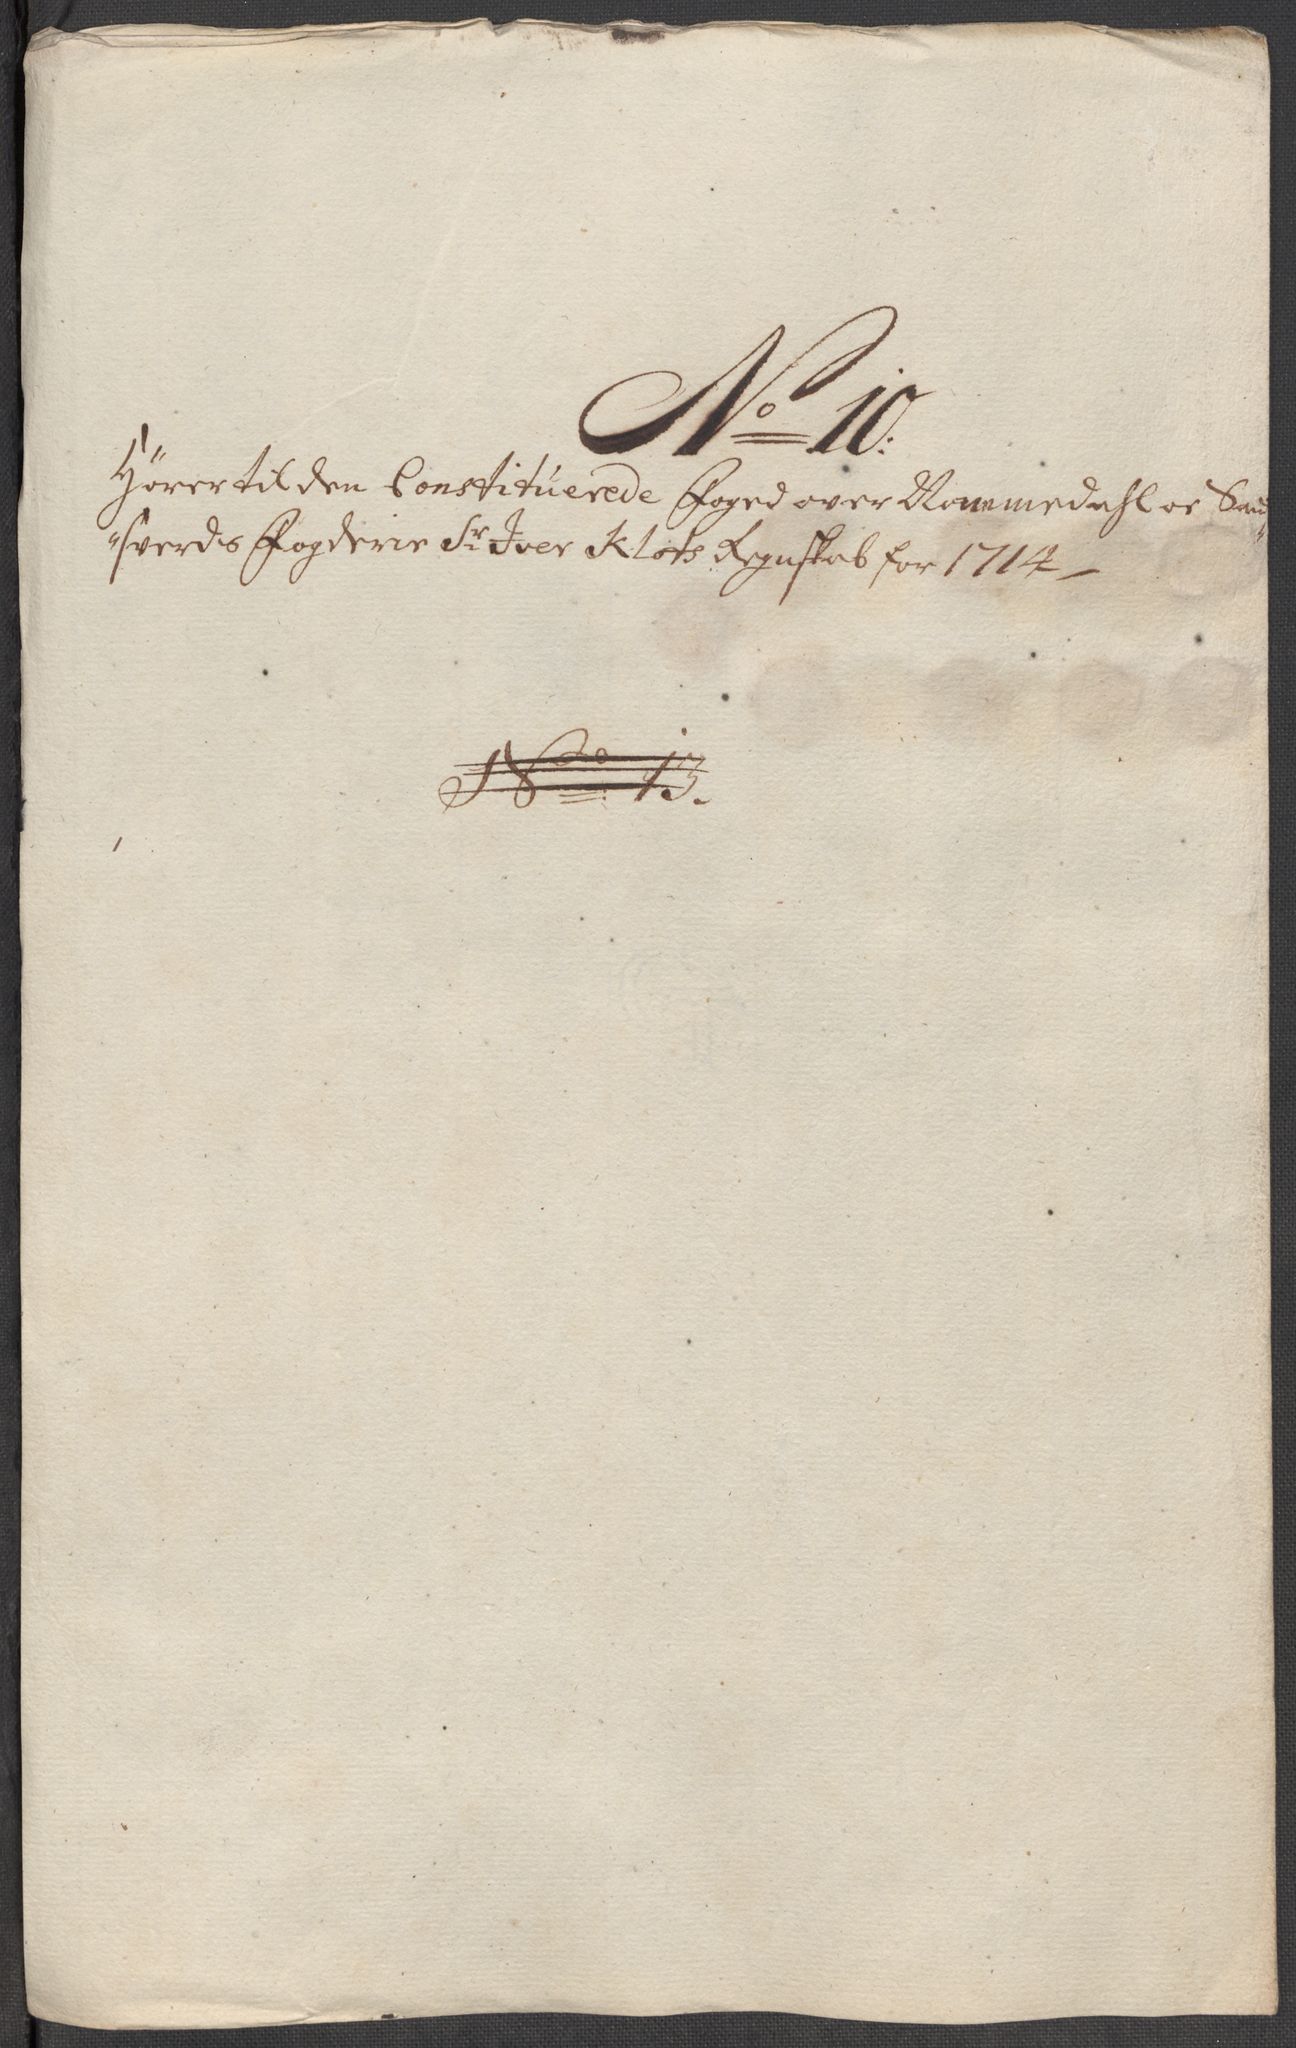 No 10.
Hörer til den Constituerede Foged over Nommedahl oc Sand
"sverds Fogderie Sr Iver Klots Regnskab for 1714
No 13.